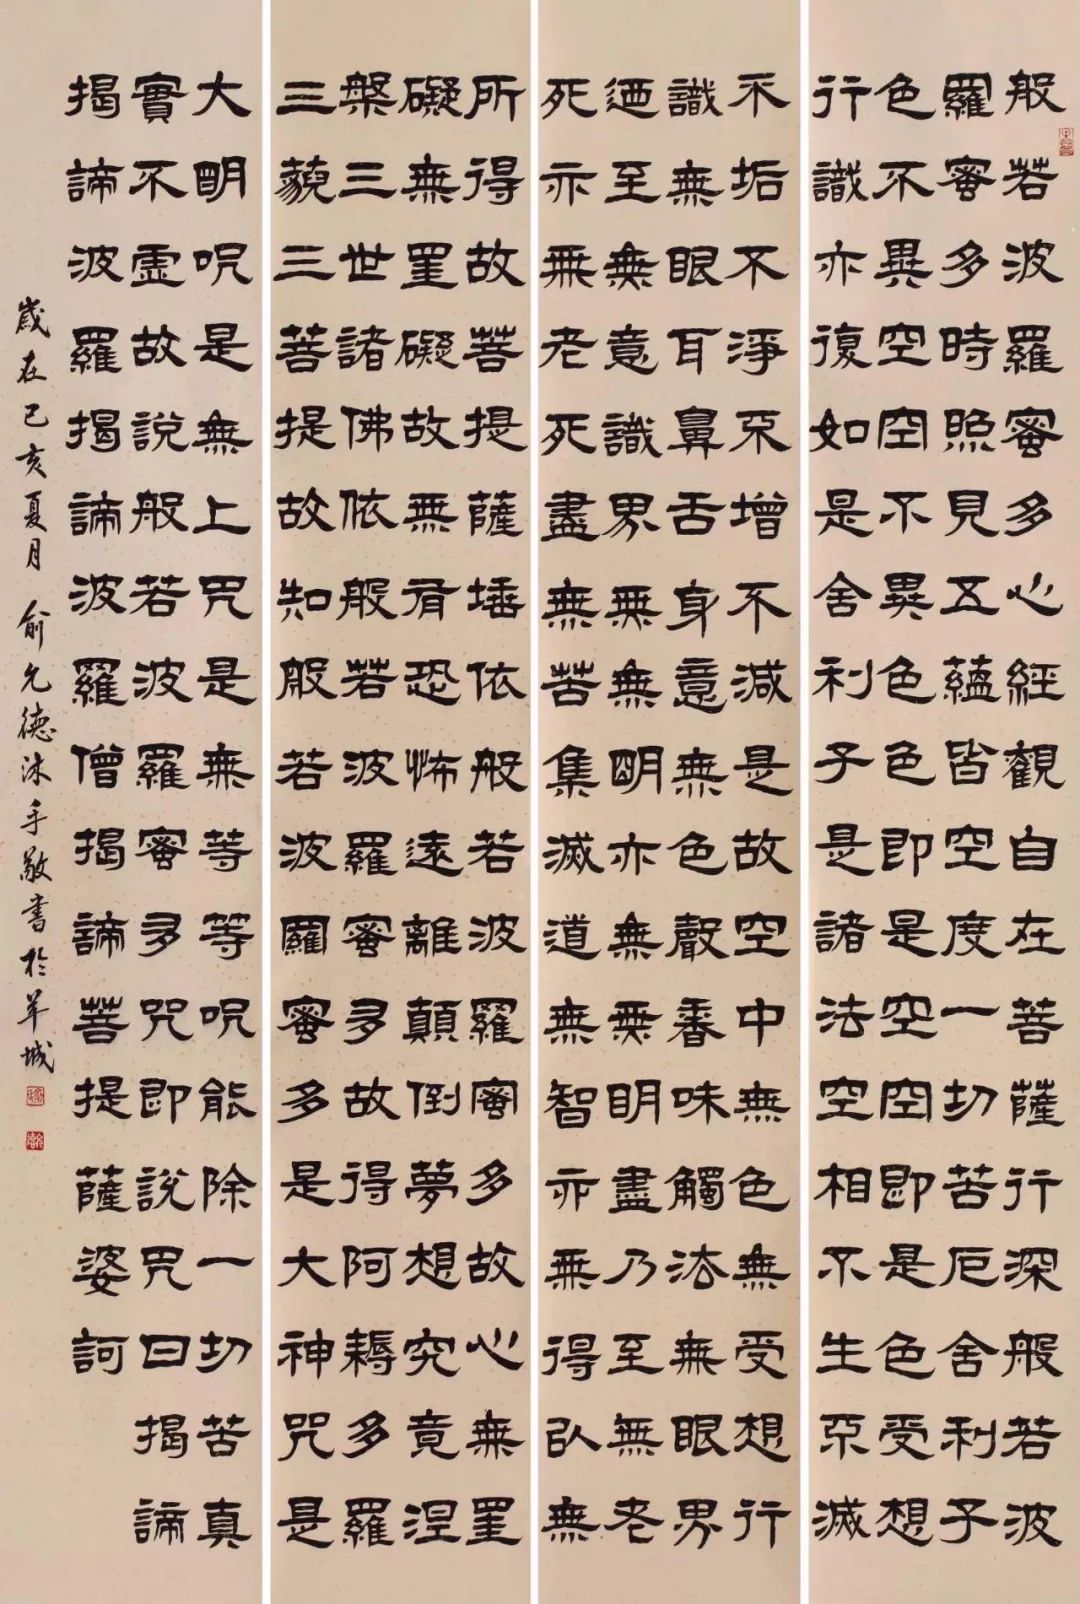 般若波羅蜜多心經觀自在菩薩行深般若波
羅蜜多時照見五蘊皆空度一切苦厄舍利子
色不異空空不異色色即是空空即是色受想
行識亦復如是舍利子是諸法空相不生不滅
不垢不淨不增不減是故空中無色無受想行
識無眼耳鼻舌身意無色聲香味觸法無眼界
迺至無意識界無無明亦無無明盡乃至無老
死亦無老死盡無苦集滅道無智亦無得以無
所得故菩提薩埵依般若波羅蜜多故心無罣
礙無罣礙故無有恐怖遠離顛倒夢想究竟涅
槃三世諸佛依般若波羅蜜多故得阿耨多羅
三藐三菩提故知般若波羅蜜多是大神咒是
大明呪是無上咒是無等等呪能除一切苦真
實不虛故說般若波羅蜜多咒即說咒曰揭諦
揭諦波羅揭諦波羅僧揭諦菩提薩婆訶
歲在己亥夏月俞允德沐手敬書於羊城